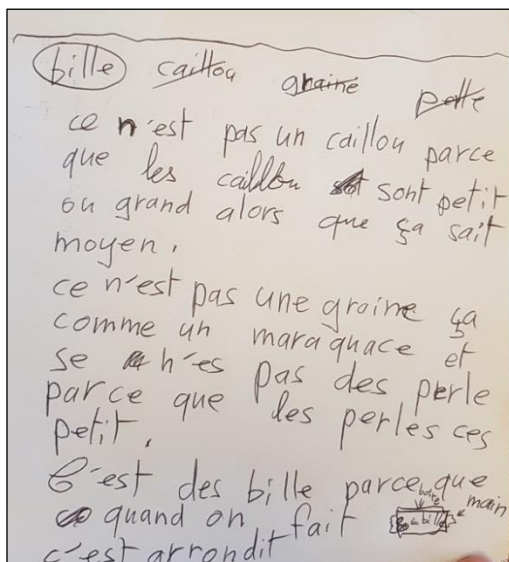 bille caillou graine perle
ce n'est pas un caillou parce
que les caillou sont petit
ou grand alors que ça sait
moyen.
ce n'est pas une graine ça
comme un maraquace et
se n'es pas des perle
parce que les perles ces
petit.
C'est des bille parce que
quand on fait boite bille main
c'est arrondit